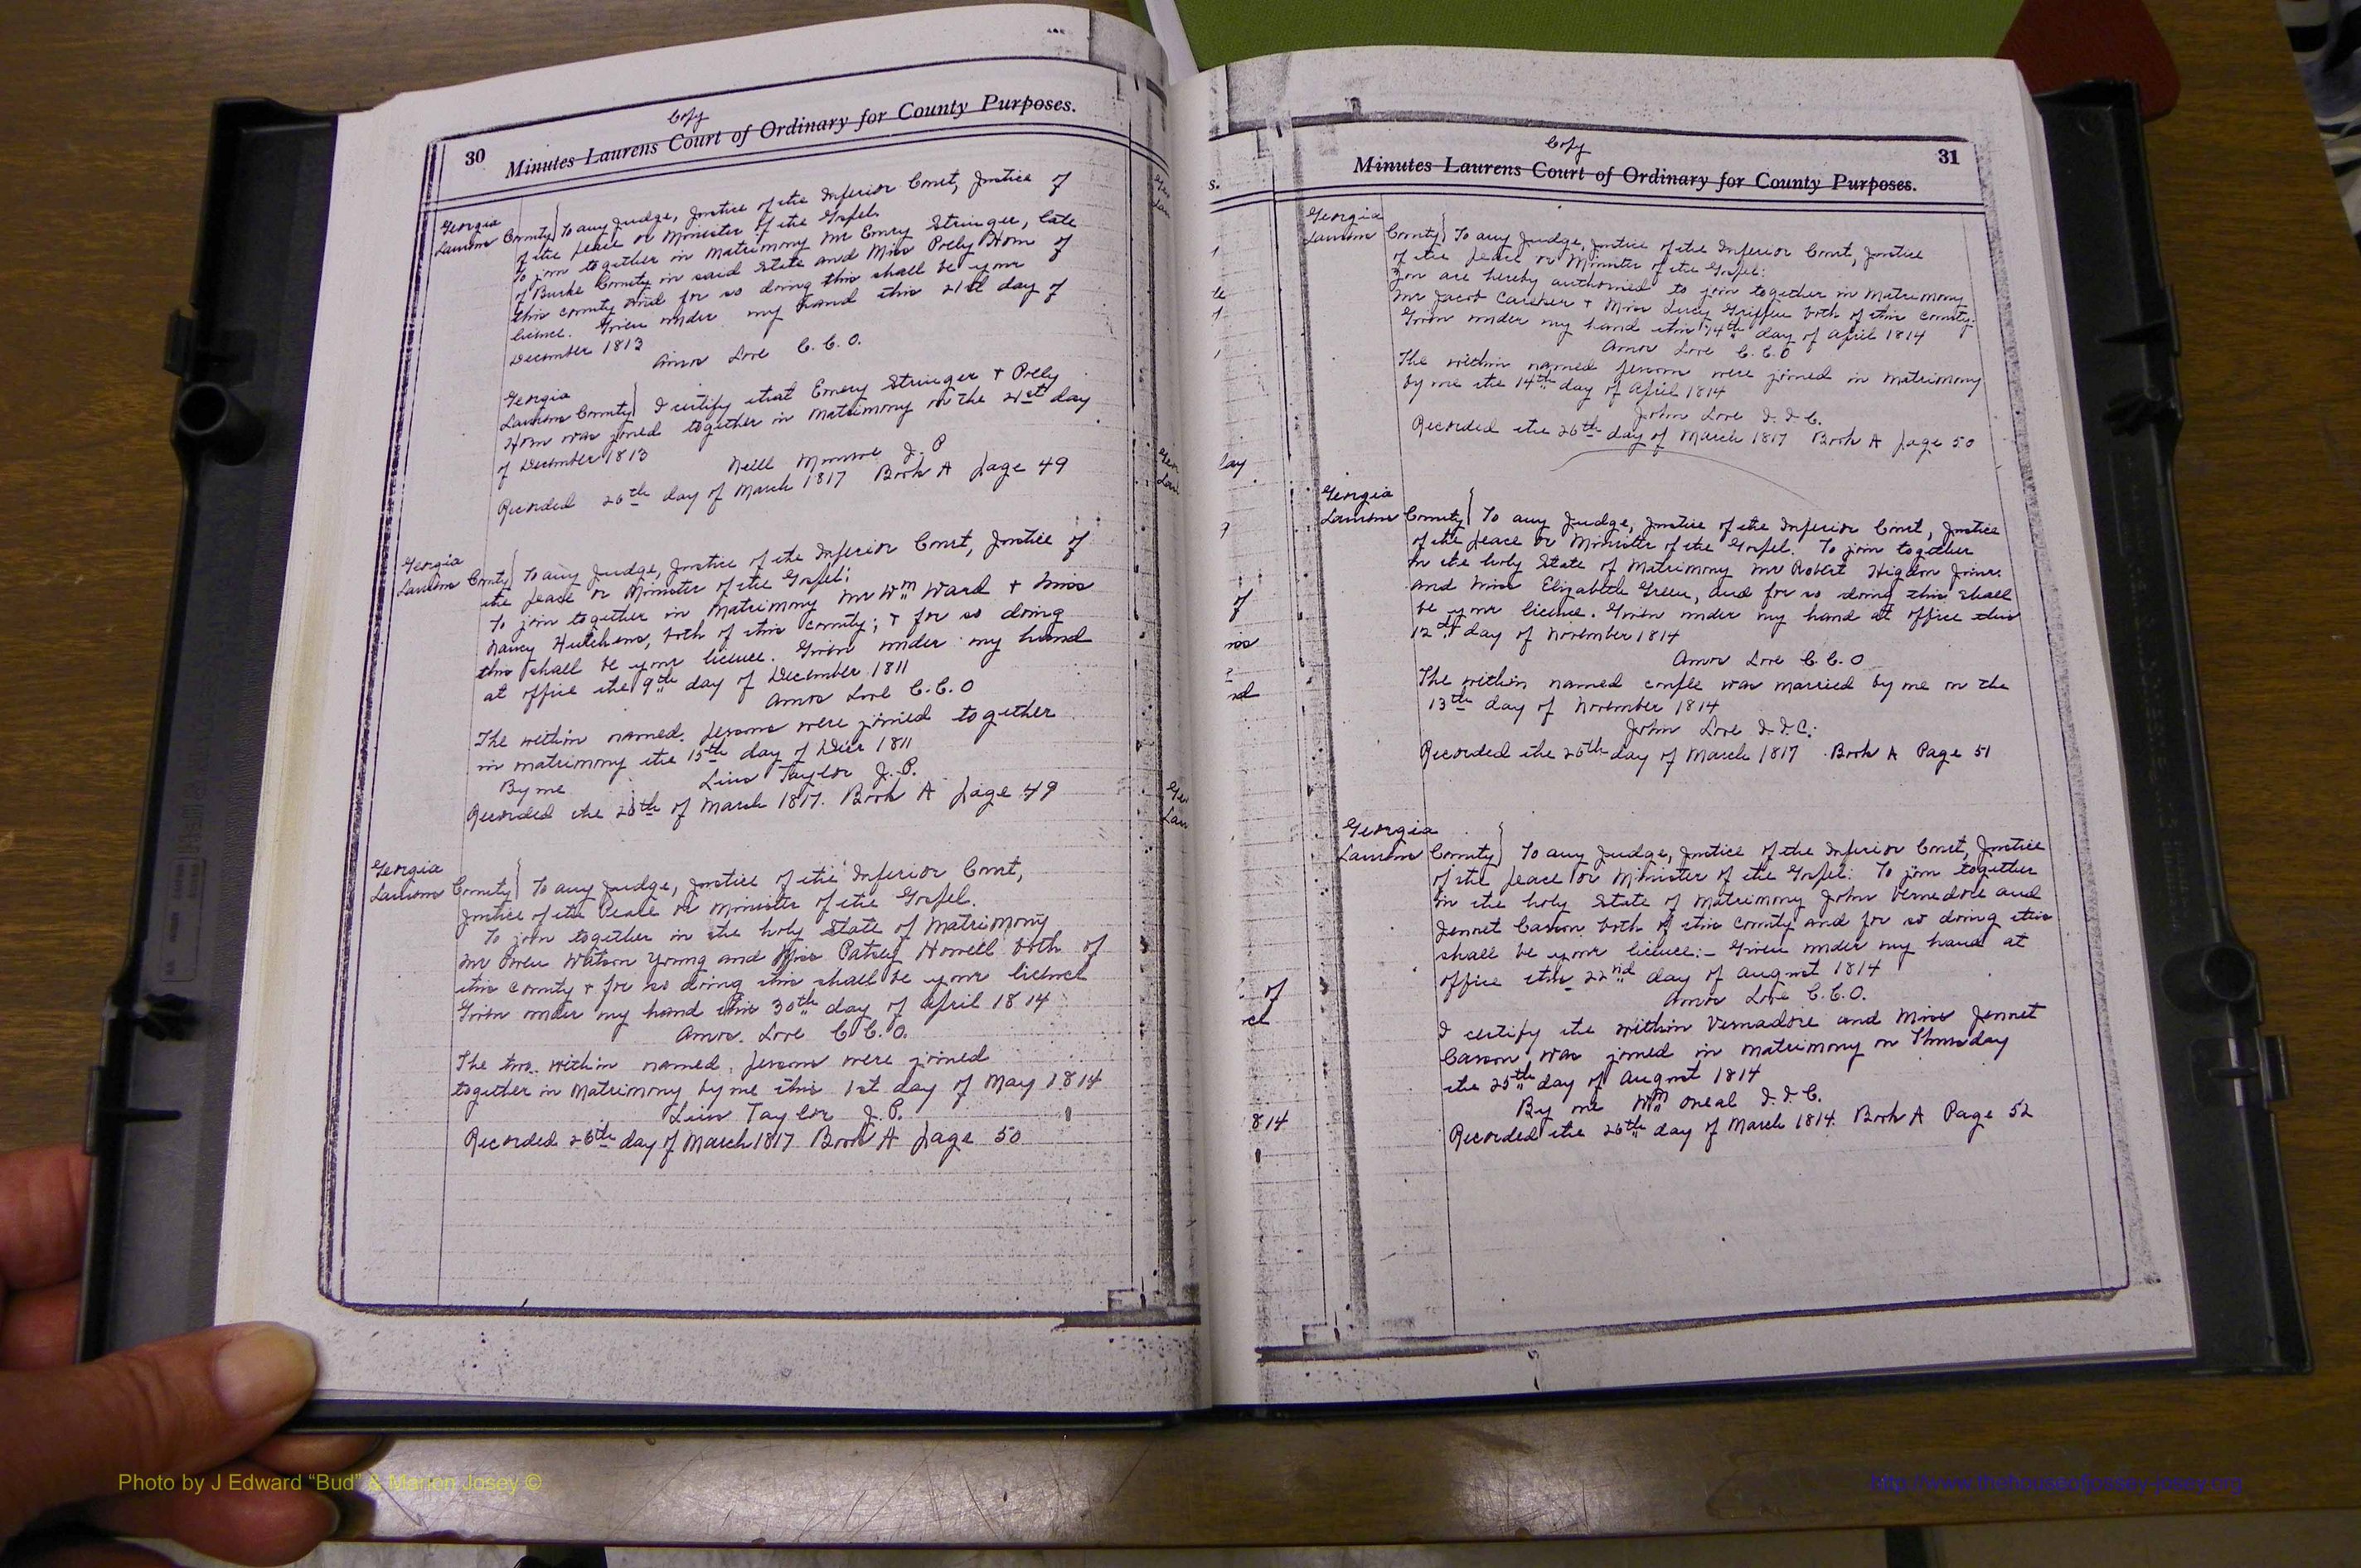 Copy
30 Minutes Laurens Court of Ordinary for County Purposes.
Georgia
Laurens County } To any Judge, Justice of the Inferior Court, Justice of
of the peace or Minister of the Gospel.
To join together in Matrimony Mr Emry Stringer, late
of Burke County in said State and Miss Polly Horn of
this county and for so doing this shall be your
licence. Given under my hand this 21st day of
December 1813
Amos Love C. C. O.
Georgia
Laurens County } I certify that Emery Stringer & Polly
Horn was joined together in matrimony on the 21st day
of December 1813
Neill Munroe J. P
Recorded 26th day of March 1817 Book A page 49
Georgia
Laurens County } To any Judge, Justice of the Inferior Court, Justice of
the peace or Minister of the Gospel:
To join together in Matrimony Mr Wm Ward & Miss
Nancy Hutchens, both of this county; & for so doing
this shall be your licence. Given under my hand
at office the 9th day of December 1811
Amos Love C. C. O
The within named persons were joined together
in matrimony the 15th day of Decr 1811
By me Lins Taylor J. P.
Recorded the 26th of March 1817. Book A page 49
Georgia
Laurens County } To any Judge, Justice of the Inferior Court,
Justice of the Peace or Minister of the Gospel.
To join together in the holy State of Matrimony
Mr Owen Watson Young and Miss Patsey Howell both of
this county & for so doing this shall be your licence
Given under my hand this 30th day of April 1814
Amos. Love C. C. O.
The two within named persons were joined
together in Matrimony by me this 1st day of May 1814
Lins Taylor J. P.
Recorded 26th day of March 1817 Book A page 50
Copy
Minutes Laurens Court of Ordinary for County Purposes. 31
Georgia
Laurens County } To any Judge, Justice of the Inferior Court, Justice
of the peace or Minister of the Gospel:
You are hereby authorised to join together in Matrimony
Mr Jacob Carcker & Miss Lucy Griffen both of this county.
Given under my hand this 14th day of April 1814
Amos Love C. C. O
The within named persons were joined in matrimony
by me the 14th day of April 1814
John Love J. I. C.
Recorded the 26th day of March 1817 Book A page 50
Georgia
Laurens County } To any Judge, Justice of the Inferior Court, Justice
of the peace or Minister of the Gospel. To join together
in the holy State of Matrimony Mr Robert Higdon Joiner
and Miss Elizabeth Green, and for so doing this shall
be your licence. Given under my hand at office this
12th day of November 1814
Amos Love C. C. O
The within named couple was married by me on the
13th day of November 1814
John Love J. I. C.
Recorded the 26th day of March 1817 Book A Page 51
Georgia
Laurens County } To any Judge, Justice of the Inferior Court, Justice
of the peace or Minister of the Gospel: To join together
in the holy State of Matrimony John Vernedore and
Jennet Cason both of this county and for so doing this
shall be your licence:- Given under my hand at
office this 22nd day of August 1814
Amos Love C. C. O.
I certify the within Vernadore and Miss Jennet
Cason, was joined in matrimony on Thursday
the 25th day of August 1814
By me Wm Oneal J. I. C.
Recorded the 26th day of March 1814. Book A Page 52
s.
lay
of
nd
of
814
Photo by J Edward “Bud” & Marion Josey ©
http://www.thehouseofjossey-josey.org